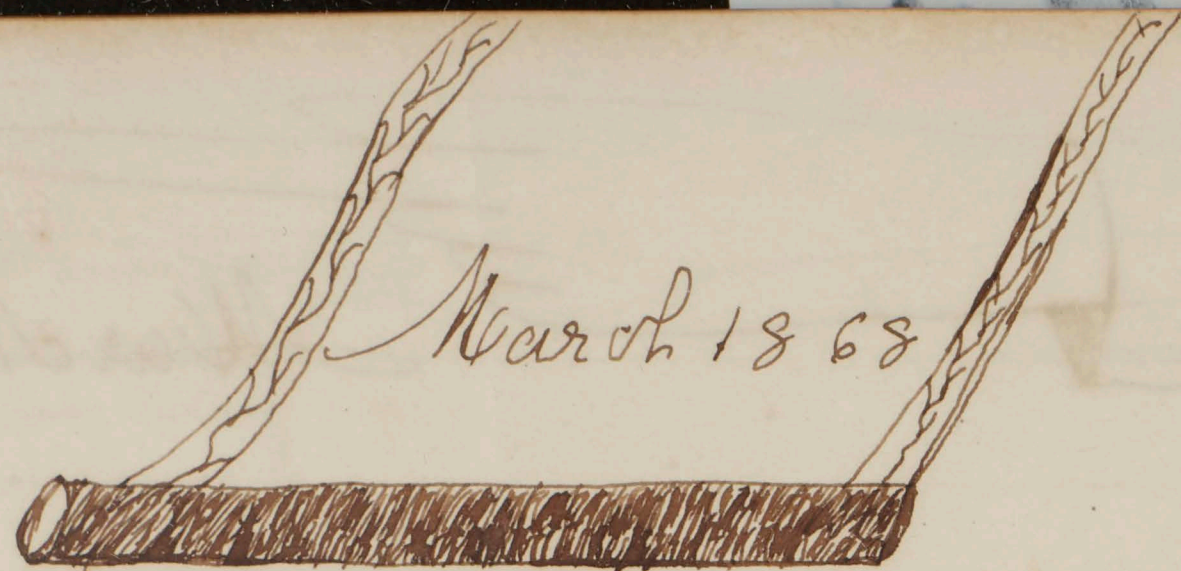 March 1868